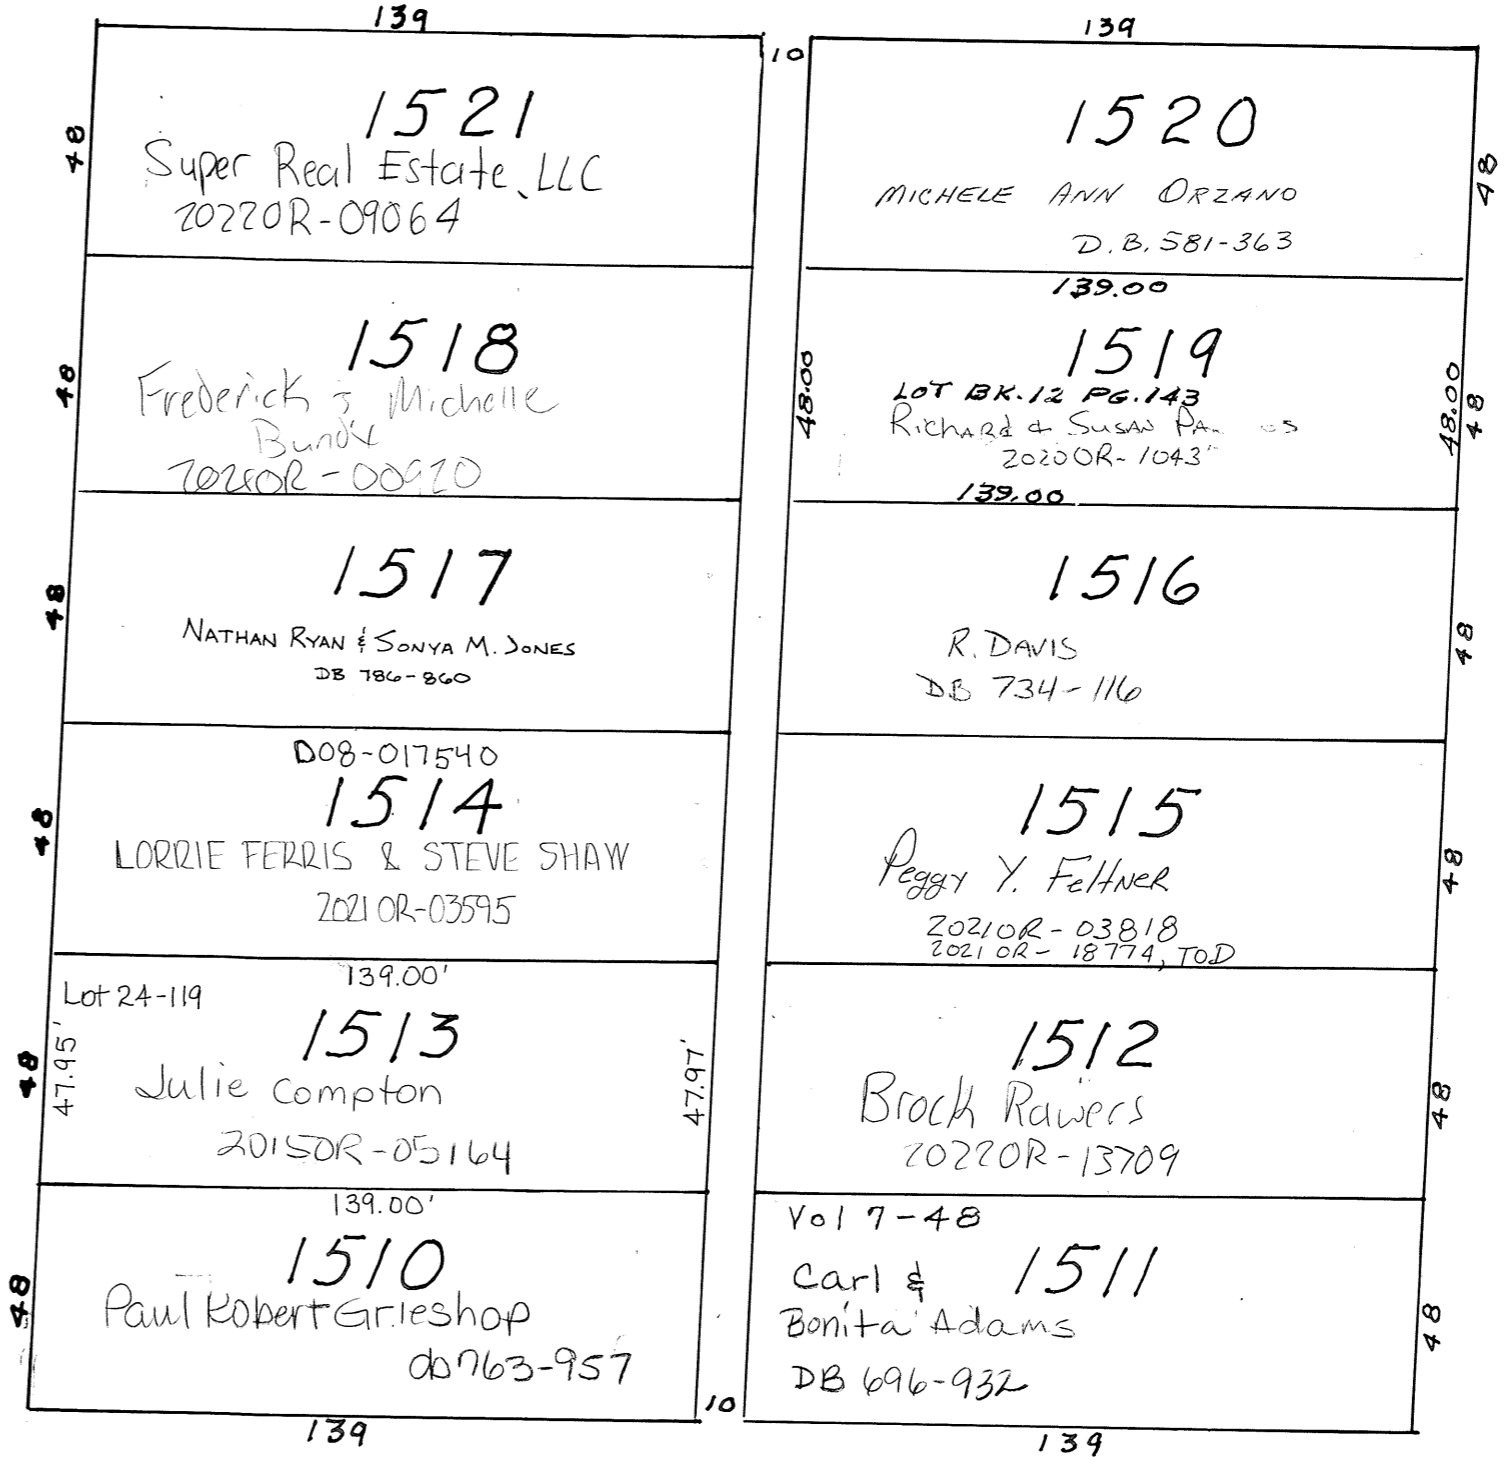 139
48
1521
Super Real Estate, LLC
2022OR-09064
48
1518
Frederick & Michelle
Bundy
48
1517
NATHAN RYAN & SONYA M. JONES
DB 786-860
48
D08-017540
1514
LORRIE FERRIS & STEVE SHAW
2021OR-03595
48
139.00'
Lot 24-119
47.95'
1513
47.97'
Julie Compton
2015OR-05164
48
139.00'
1510
Paul Robert Grieshop
db 763-957
139
10
10
139
1520
48
MICHELE ANN ORZANO
D.B. 581-363
139.00
48.00
1519
48.00
48
LOT BK.12 PG.143
RICHARD & SUSAN
2020OR-1043
139.00
1516
48
R. DAVIS
DB 734-116
1515
48
Peggy Y. Feltner
2021OR-03818
2021OR-18774, TOD
1512
48
Brock Rawers
2022OR-13709
Vol 7-48
1511
Carl &
Bonita Adams
48
DB 696-932
139